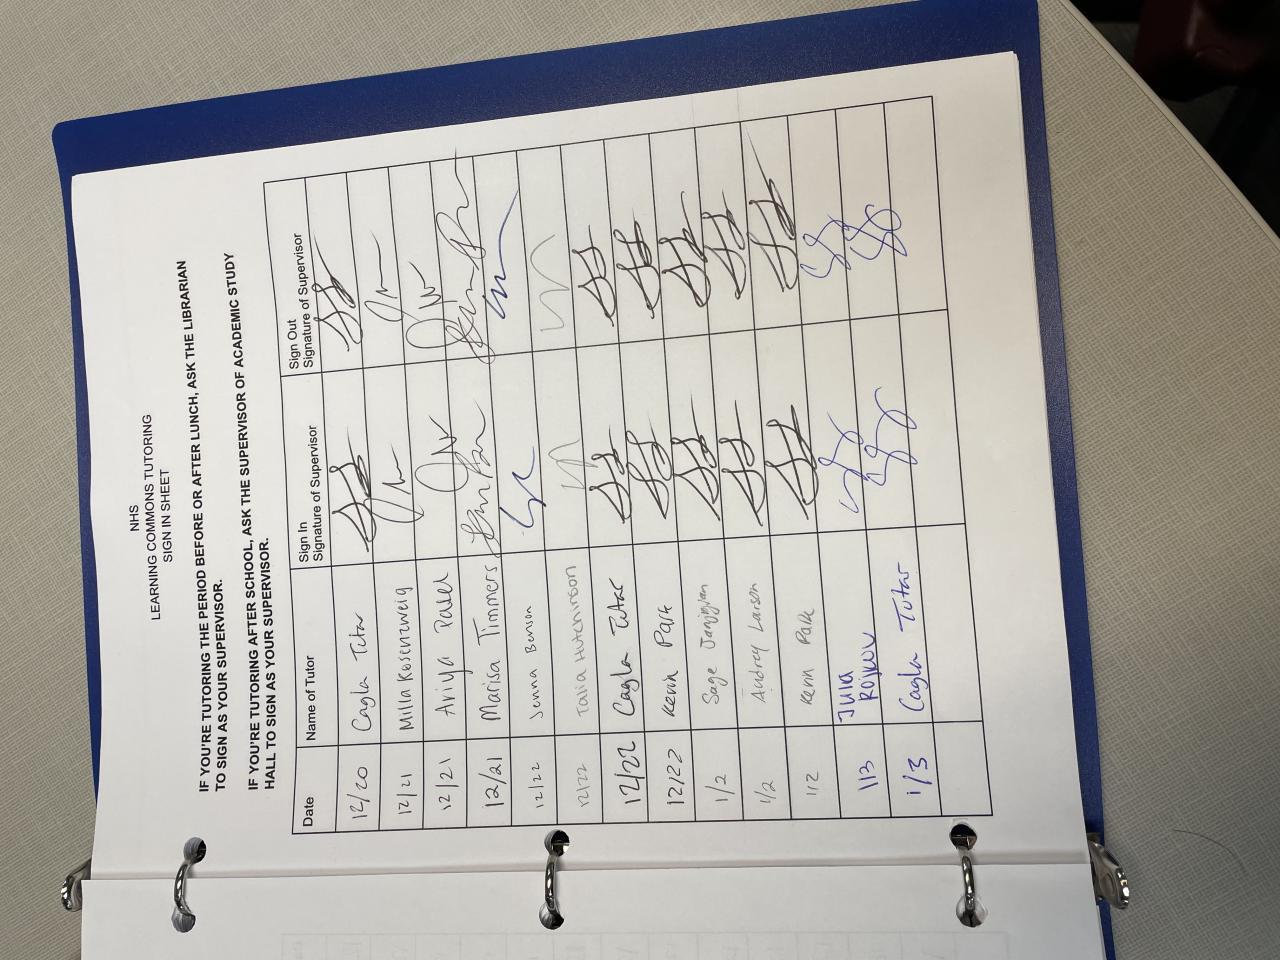 NHS
LEARNING COMMONS TUTORING
SIGN IN SHEET
IF YOU'RE TUTORING THE PERIOD BEFORE OR AFTER LUNCH, ASK THE LIBRARIAN
TO SIGN AS YOUR SUPERVISOR.
IF YOU'RE TUTORING AFTER SCHOOL, ASK THE SUPERVISOR OF ACADEMIC STUDY
HALL TO SIGN AS YOUR SUPERVISOR.
Date Name of Tutor Sign In Signature of Supervisor Sign Out Signature of Supervisor
12/20 Cagla Tutar
12/21 Milla Rosenzweig
12/21 Ariya Patel
12/21 Marisa Timmers
12/22 Jenna Benson
12/22 Talia Hutchinson
12/22 Cagla Tutar
12/22 Kevin Park
1/2 Sage
1/2 Audrey Larson
1/2 Kevin Park
1/3 Julia
1/3 Cagla Tutar